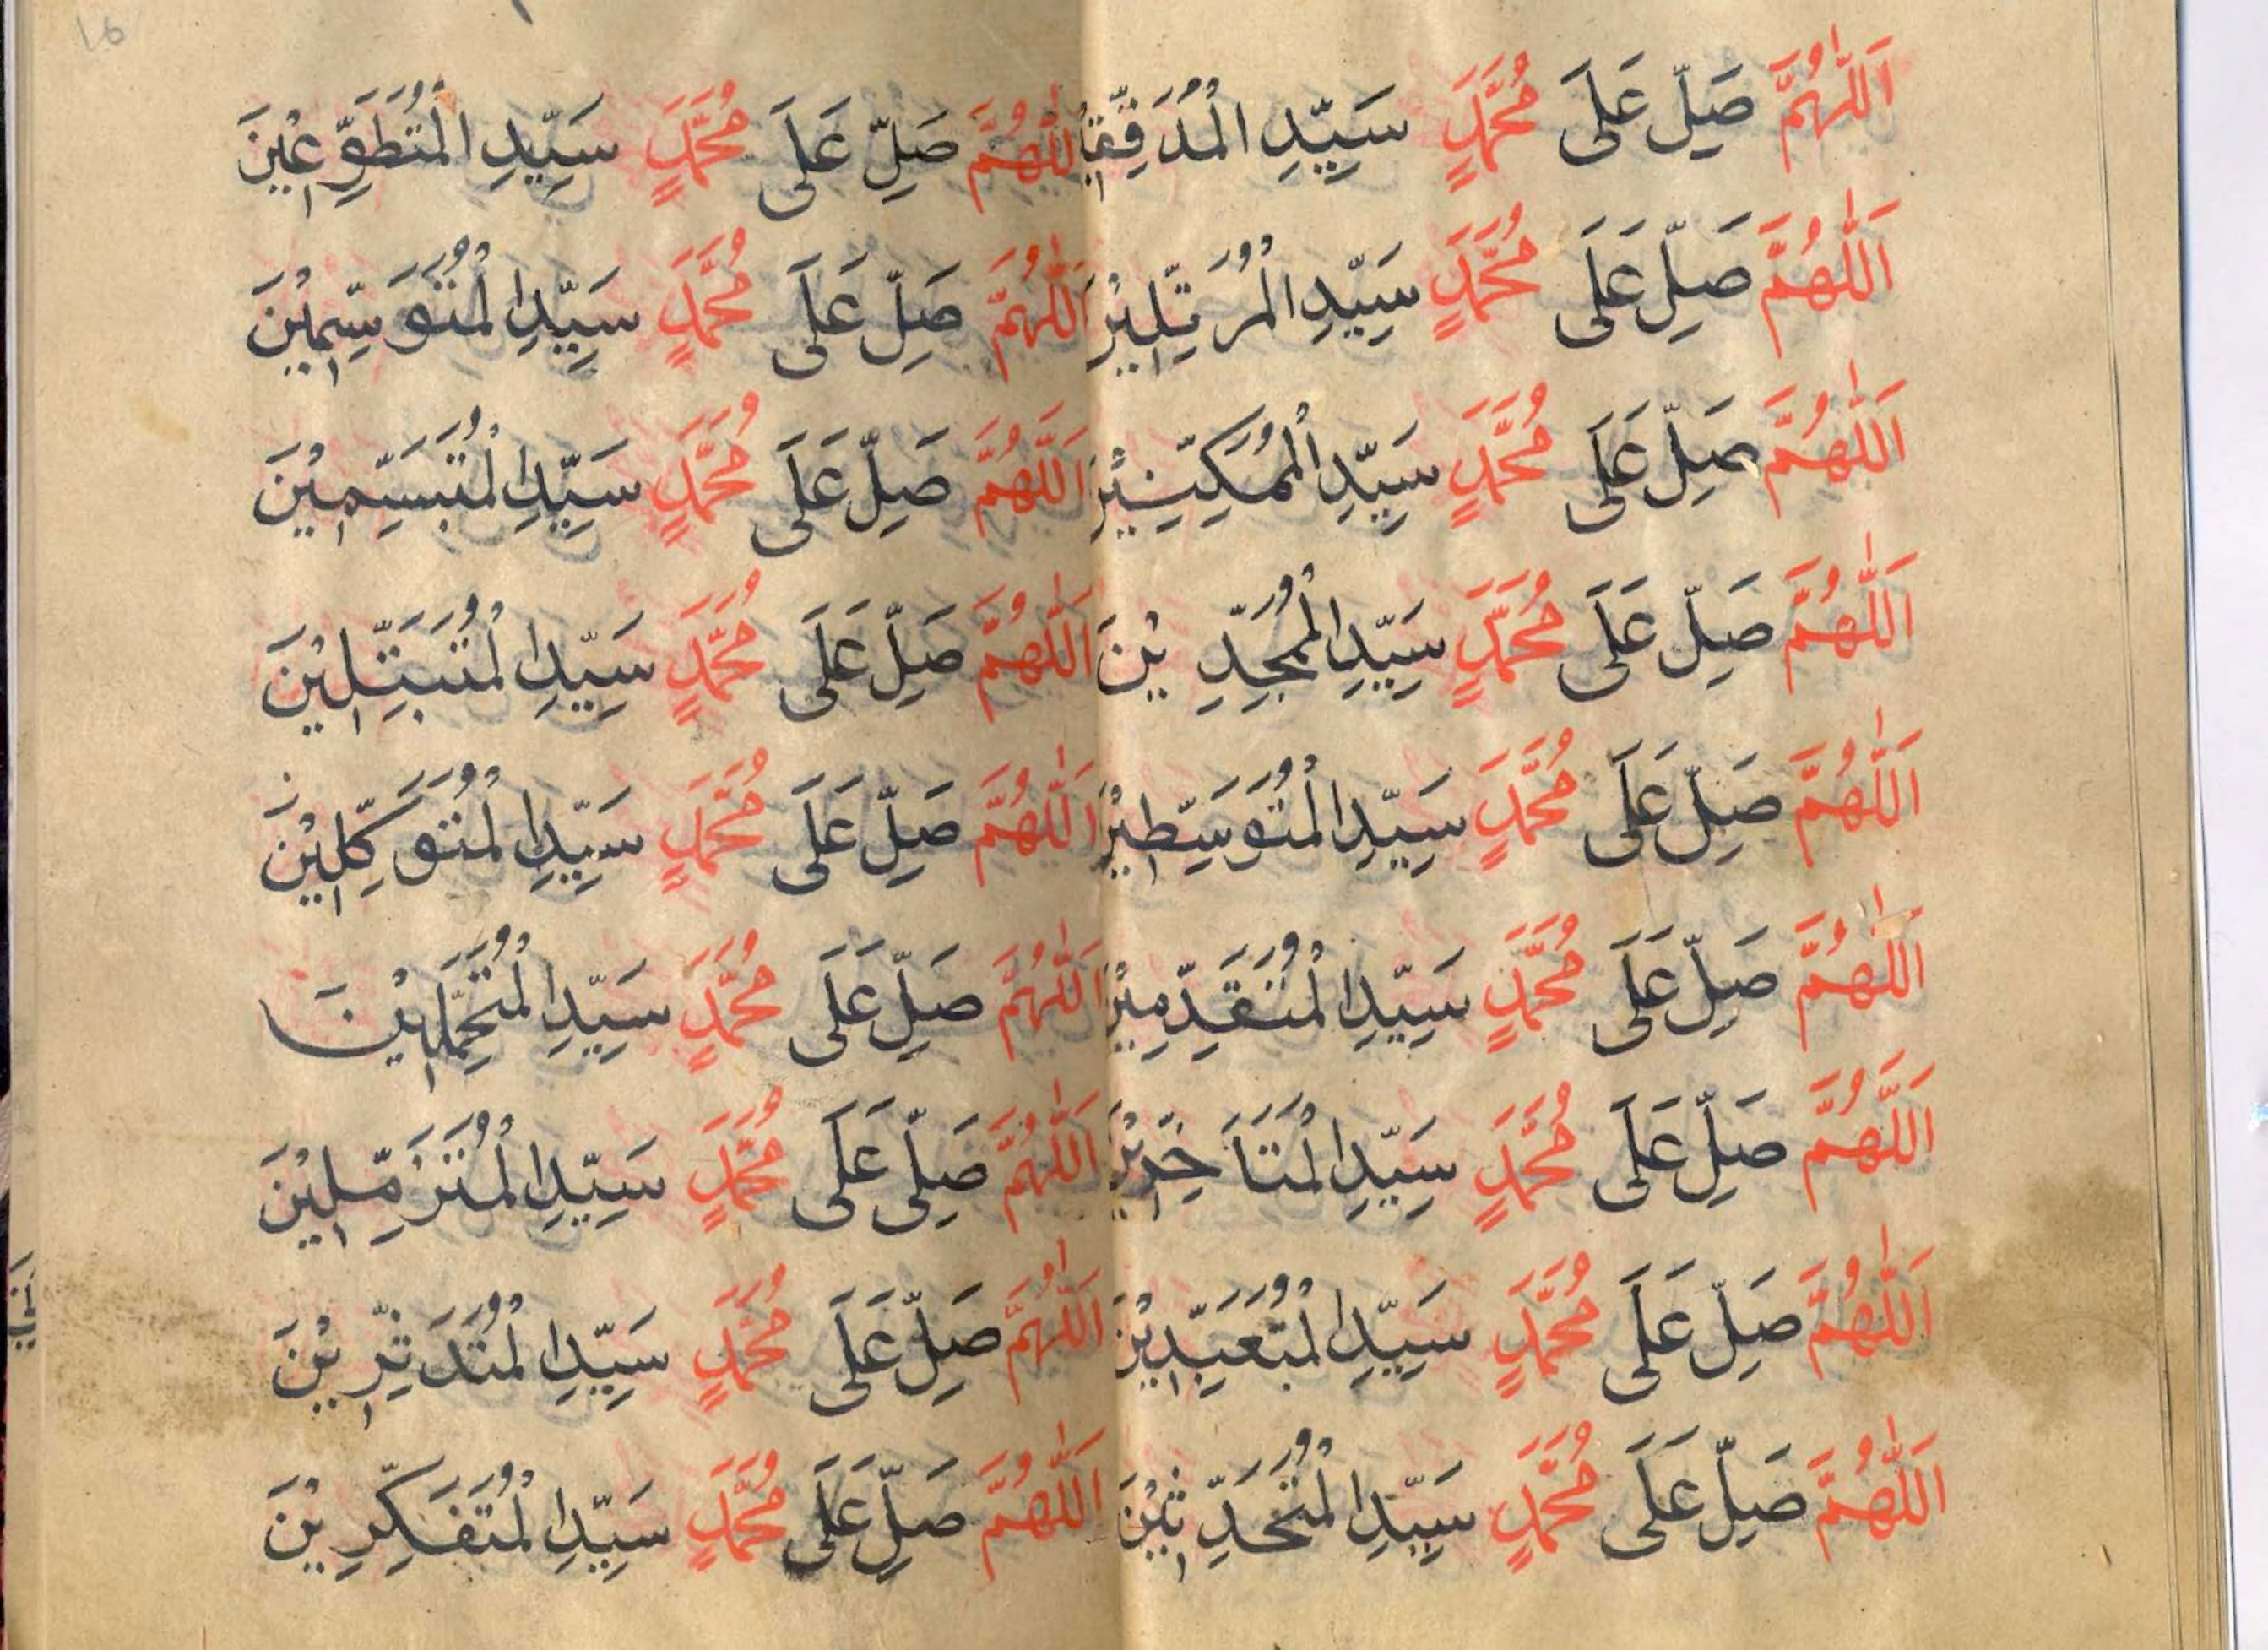 اَللّٰهُمَّ صَلِّ عَلَى مُحَمَّدٍ سَيِّدِ الْمُدَقِّقِيْنَ
اَللّٰهُمَّ صَلِّ عَلَى مُحَمَّدٍ سَيِّدِ الْمُرَتِّلِيْنَ
اَللّٰهُمَّ صَلِّ عَلَى مُحَمَّدٍ سَيِّدِ الْمُمَكِّنِيْنَ
اَللّٰهُمَّ صَلِّ عَلَى مُحَمَّدٍ سَيِّدِ الْمُجِدِّيْنَ
اَللّٰهُمَّ صَلِّ عَلَى مُحَمَّدٍ سَيِّدِ الْمُتَوَسِّطِيْنَ
اَللّٰهُمَّ صَلِّ عَلَى مُحَمَّدٍ سَيِّدِ الْمُتَقَدِّمِيْنَ
اَللَّهُمَّ صَلِّ عَلَى مُحَمَّدٍ سَيِّدِ الْمُتَاَخِّرِيْنَ
اَللّٰهُمَّ صَلِّ عَلَى مُحَمَّدٍ سَيِّدِ الْمُتَعَبِّدِيْنَ
اَللّٰهُمَّ صَلِّ عَلَى مُحَمَّدٍ سَيِّدِ الْمُتَحَدِّثِيْنَ
١٦
اَللّٰهُمَّ صَلِّ عَلَى مُحَمَّدٍ سَيِّدِ الْمُتَطَوِّعِيْنَ
اَللّٰهُمَّ صَلِّ عَلَى مُحَمَّدٍ سَيِّدِ الْمُتَوَسِّمِيْنَ
اَللَّهُمَّ صَلِّ عَلَى مُحَمَّدٍ سَيِّدِ الْمُتَبَسِّمِيْنَ
اَللّٰهُمَّ صَلِّ عَلَى مُحَمَّدٍ سَيِّدِ الْمُتَبَتِّلِيْنَ
اَللّٰهُمَّ صَلِّ عَلَى مُحَمَّدٍ سَيِّدِ الْمُتَوَكِّلِيْنَ
اَللّٰهُمَّ صَلِّ عَلَى مُحَمَّدٍ سَيِّدِ الْمُتَحَمِّلِيْنَ
اَللّٰهُمَّ صَلِّى عَلَى مُحَمَّدٍ سَيِّدِ الْمُتَزَمِّلِيْنَ
اَللّٰهُمَّ صَلِّ عَلَى مُحَمَّدٍ سَيِّدِ الْمُتَدَثِّرِيْنَ
اَللّٰهُمَّ صَلِّ عَلَى مُحَمَّدٍ سَيِّدِ الْمُتَفَكِّرِيْنَ